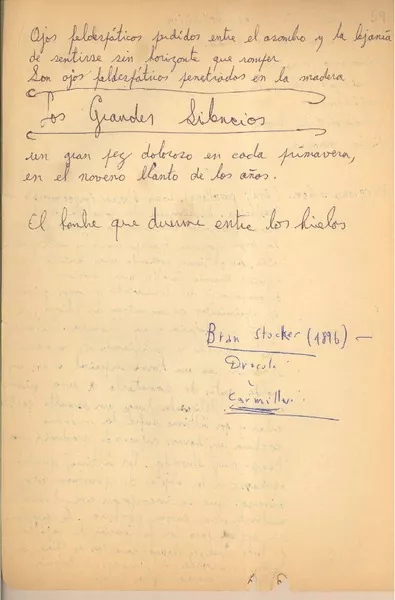 59
Ojos feldespáticos perdidos entre el asombro y la lejanía
de sentirse sin horizonte que romper.
Son ojos feldespáticos penetrados en la madera
Los Grandes Silencios
un gran pez doloroso en cada primavera,
en el noveno llanto de los años.
El hombre que duerme entre los hielos
Bran Stocker (1896) —
Dracula
y
Carmilla.